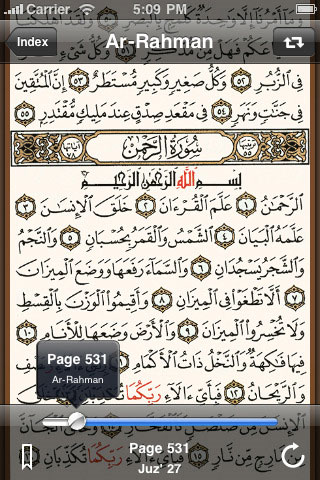 Carrier 5:09 PM
Index Ar-Rahman
فِى ٱلزُّبُرِ ٥٢ وَكُلُّ صَغِيرٍ وَكَبِيرٍ مُّسْتَطَرٌ ٥٣ إِنَّ ٱلْمُتَّقِينَ
فِى جَنَّٰتٍ وَنَهَرٍ ٥٤ فِى مَقْعَدِ صِدْقٍ عِندَ مَلِيكٍ مُّقْتَدِرٍ ٥٥
سُورَةُ الرَّحْمَٰن
بِسْمِ ٱللَّهِ ٱلرَّحْمَٰنِ ٱلرَّحِيمِ
ٱلرَّحْمَٰنُ ١ عَلَّمَ ٱلْقُرْءَانَ ٢ خَلَقَ ٱلْإِنسَٰنَ ٣
عَلَّمَهُ ٱلْبَيَانَ ٤ ٱلشَّمْسُ وَٱلْقَمَرُ بِحُسْبَانٍ ٥ وَٱلنَّجْمُ
وَٱلشَّجَرُ يَسْجُدَانِ ٦ وَٱلسَّمَآءَ رَفَعَهَا وَوَضَعَ ٱلْمِيزَانَ
٧ أَلَّا تَطْغَوْا۟ فِى ٱلْمِيزَانِ ٨ وَأَقِيمُوا۟ ٱلْوَزْنَ بِٱلْقِسْطِ
وَلَا تُخْسِرُوا۟ ٱلْمِيزَانَ ٩ وَٱلْأَرْضَ وَضَعَهَا لِلْأَنَامِ ١٠
فِيهَا فَٰكِهَةٌ وَٱلنَّخْلُ ذَاتُ ٱلْأَكْمَامِ
وَٱلرَّيْحَانُ ١٢ فَبِأَىِّ ءَالَآءِ رَبِّكُمَا
Page 531
Ar-Rahman
Page 531
Juz' 27